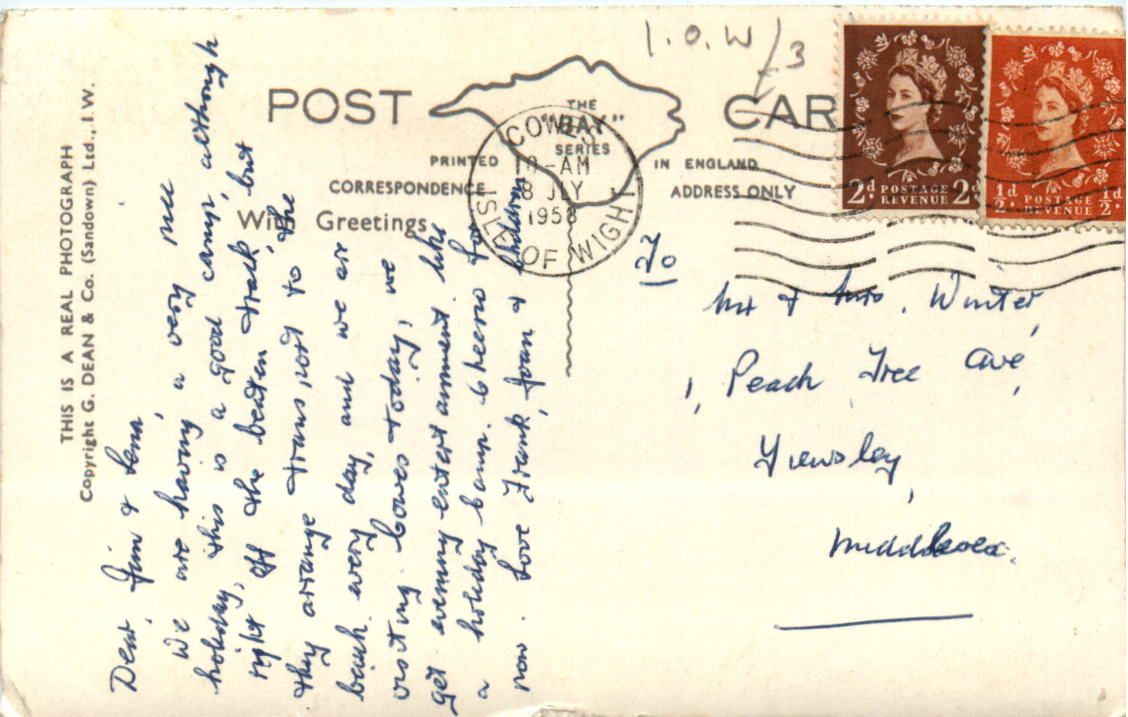 THIS IS A REAL PHOTOGRAPH
Copyright G. DEAN & Co. (Sandown) Ltd., I.W.
I.O.W /3
POST CAR
THE
"BAY"
SERIES
PRINTED IN ENGLAND
CORRESPONDENCE ADDRESS ONLY
With Greetings
COWES
10-AM
8 JLY
1958
ISLE OF WIGHT
2d POSTAGE 2d
REVENUE
½d POSTAGE ½d
REVENUE
Dear Jim & Lena,
We are having a very nice
holiday, this is a good camp, although
right off the beaten track, but
they arrange transport to the
beach every day, and we are
visiting Cowes today, we
get evening entertainment like
a holiday camp. Cheerio for
now. Love Frank, Joan & children
To
Mr & Mrs. Winter,
1, Peach Tree Ave,
Yiewsley,
Middlesex.